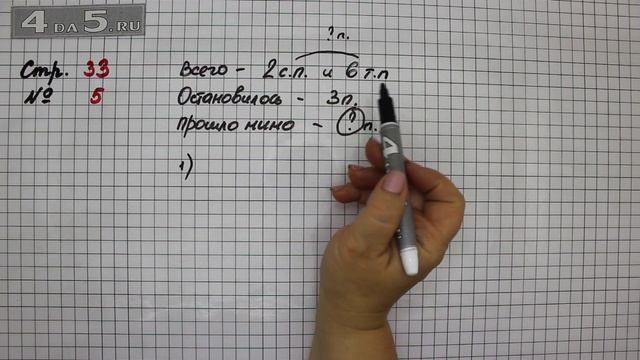 4DA5.RU
? п.
Стр. 33 Всего - 2 с.п. и 6 т.п
№ 5 Остановилось - 3 п.
прошло мимо - ? п.
1)